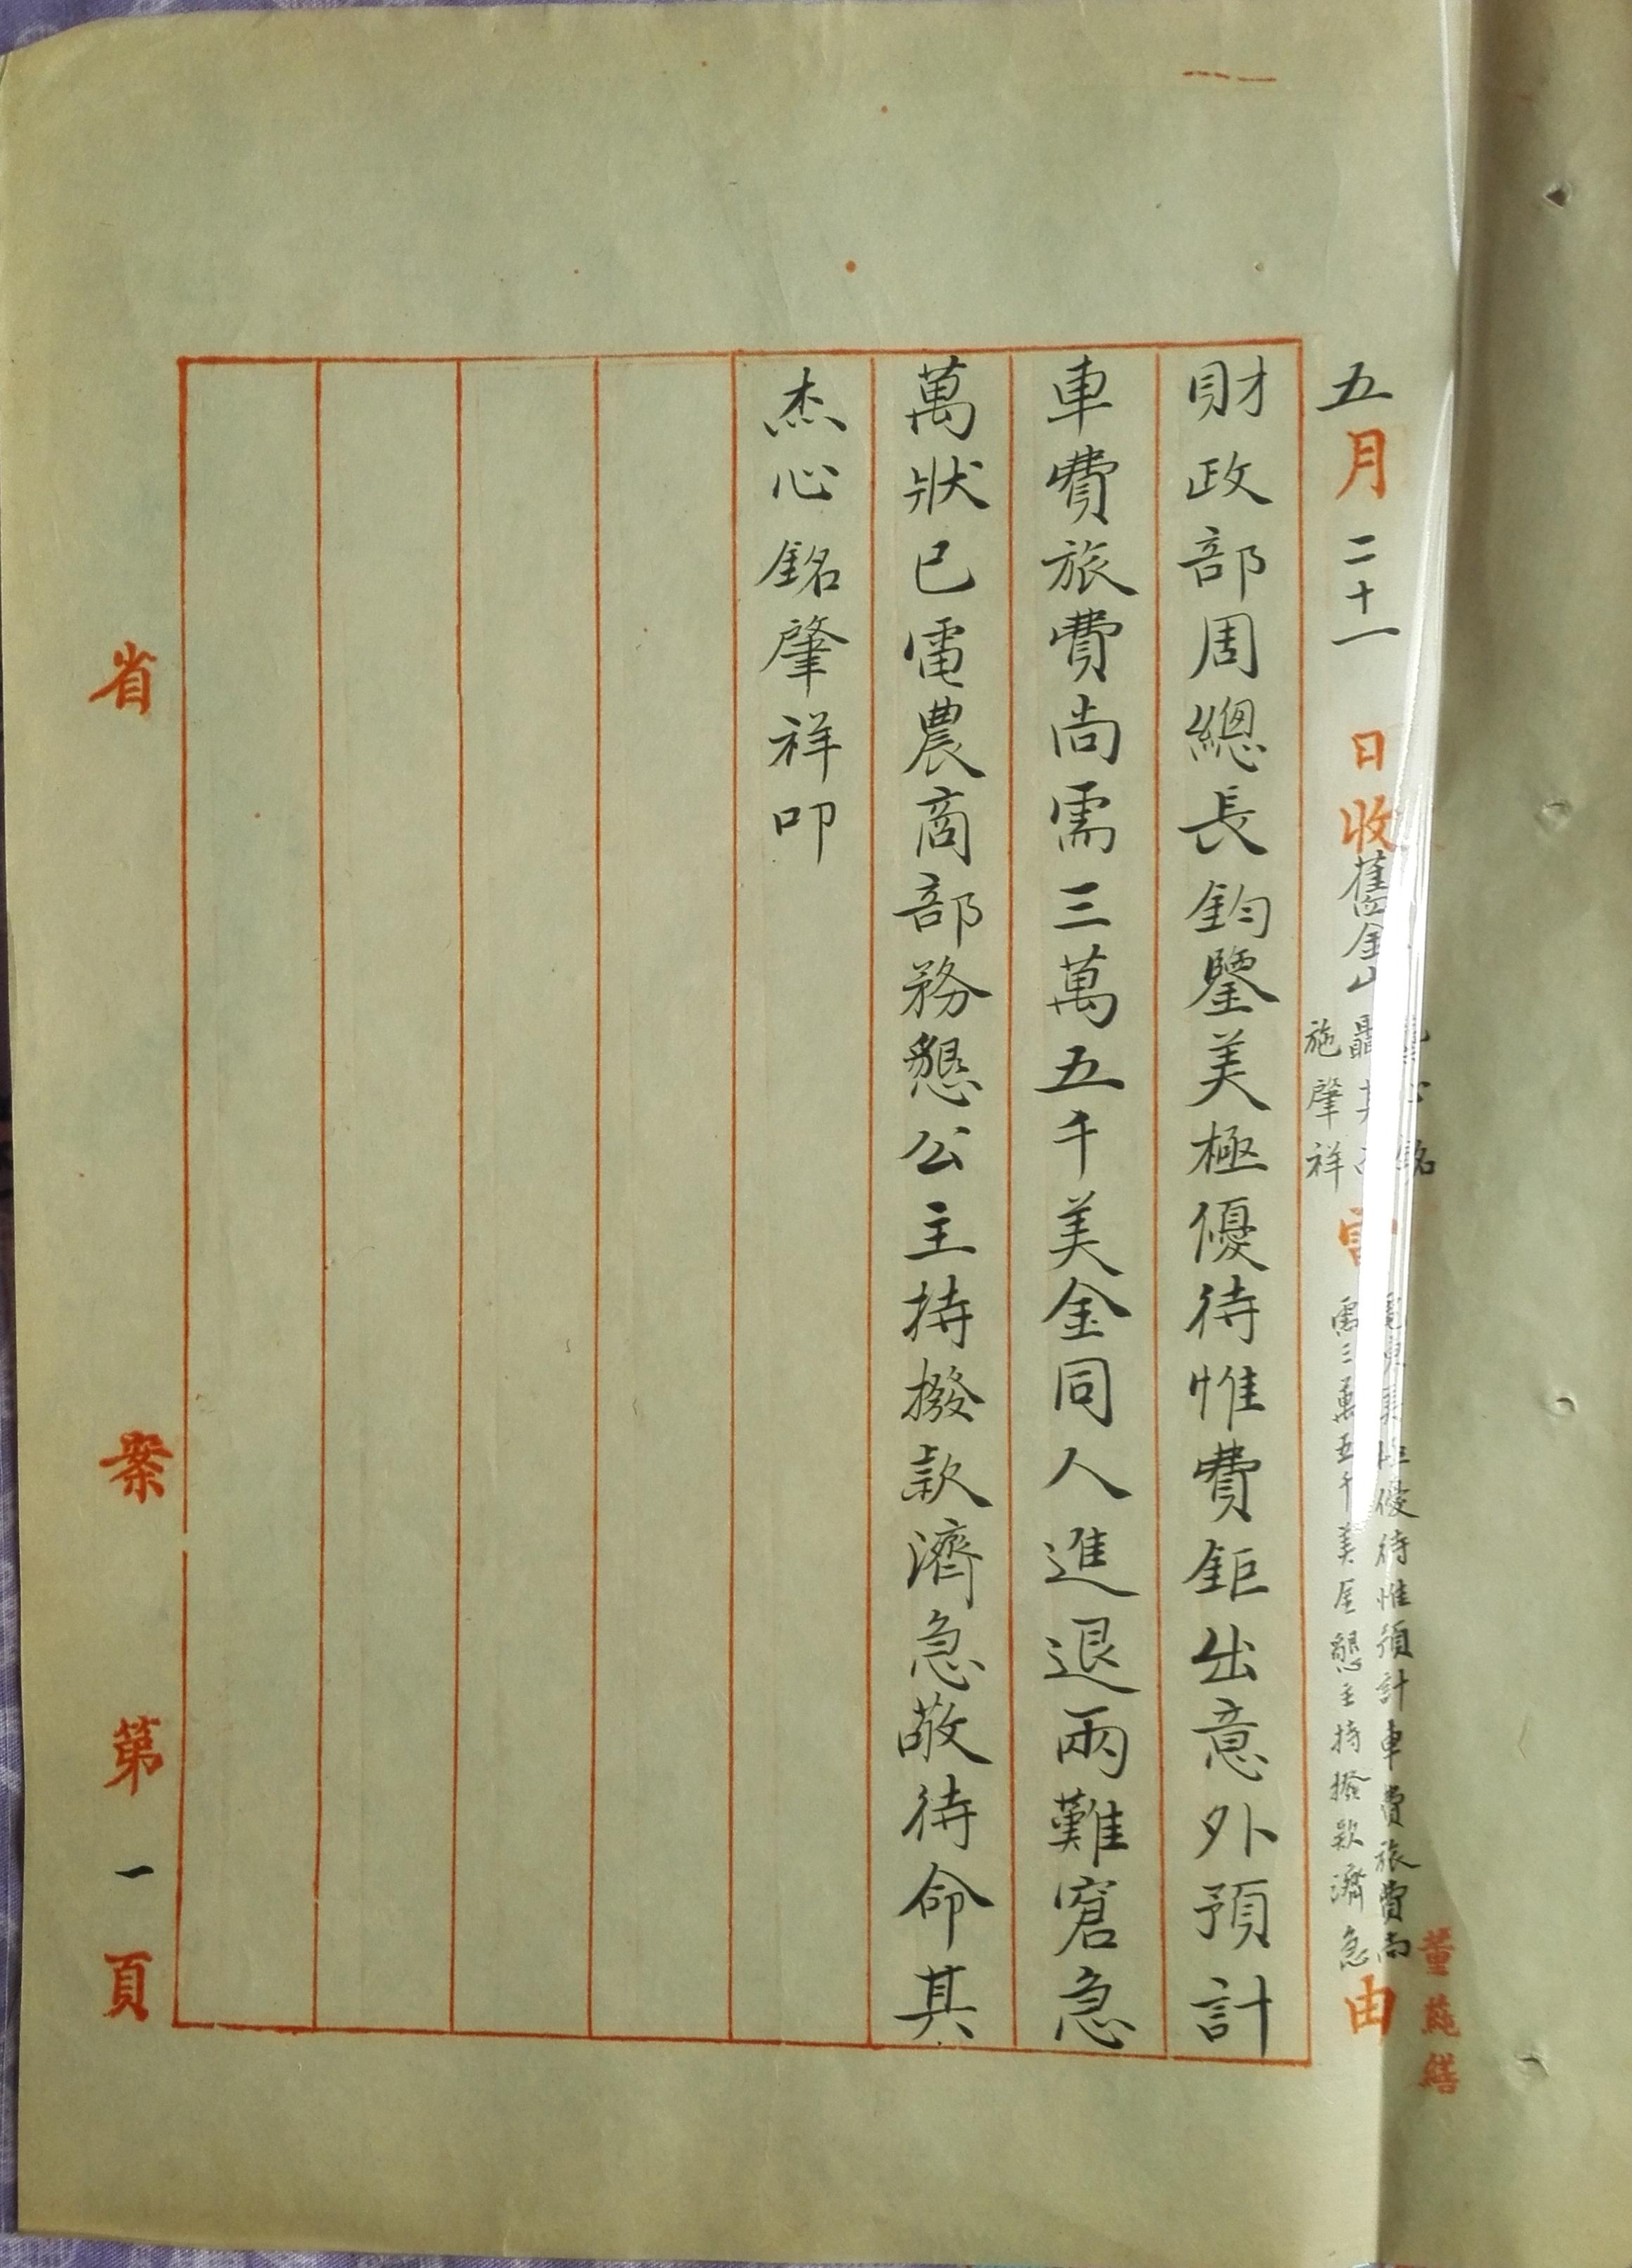 五月二十一日收舊金山
施肇祥
優待惟預計車費旅費尚
需三萬五千美金懇主持撥款濟急
由
財政部周總長鈞鑒美極優待惟費鉅出意外預計
車費旅費尚需三萬五千美金同人進退兩難窘急
萬狀已電農商部務懇公主持撥款濟急敬待命其
杰心銘肇祥叩
省案第一頁